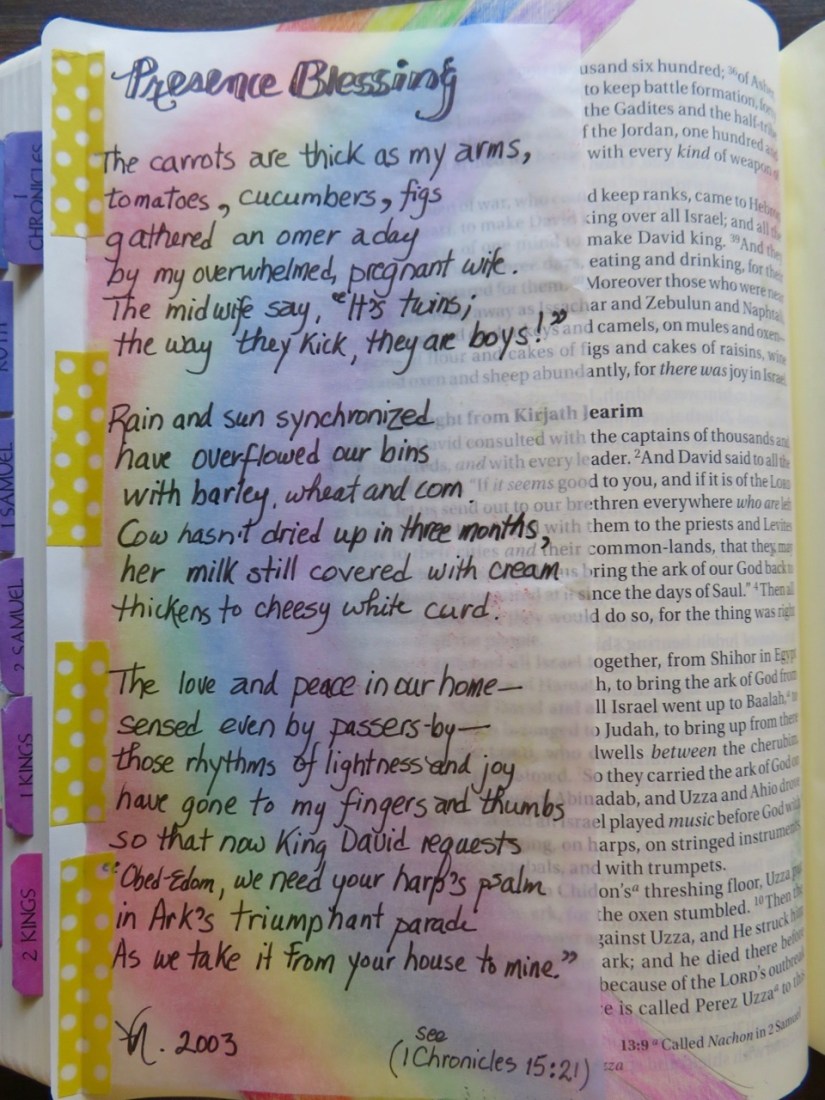 Presence Blessing
The carrots are thick as my arms,
tomatoes, cucumbers, figs
gathered an omer a day
by my overwhelmed, pregnant wife.
The midwife say, "It's twins;
the way they kick, they are boys!"
Rain and sun synchronized
have overflowed our bins
with barley, wheat and corn.
Cow hasn't dried up in three months,
her milk still covered with cream
thickens to cheesy white curd.
The love and peace in our home—
sensed even by passers-by—
those rhythms of lightness and joy
have gone to my fingers and thumbs
so that now King David requests
"Obed-Edom, we need your harp's psalm
in Ark's triumphant parade
As we take it from your house to mine."
2003
see
(1 Chronicles 15:21)
1 CHRONICLES
RUTH
1 SAMUEL
2 SAMUEL
1 KINGS
2 KINGS
usand six hundred; 36 of Asher,
to keep battle formation,
the Gadites and the half-
f the Jordan, one hundred and
with every kind of weapon
d keep ranks, came to Hebron
king over all Israel; and all the
make David king. 39 And they
eating and drinking, for their
Moreover those who were near
away as Issachar and Zebulun and Naphtali,
and camels, on mules and oxen—
flour and cakes of figs and cakes of raisins, wine
and oxen and sheep abundantly, for there was joy in Israel.
ght from Kirjath Jearim
David consulted with the captains of thousands and
and with every leader. 2 And David said to all the
"If it seems good to you, and if it is of the LORD
send out to our brethren everywhere who are left
with them to the priests and Levites
cities and their common-lands, that they may
bring the ark of our God back to
since the days of Saul." 4 Then all
would do so, for the thing was right
all Israel together, from Shihor in Egypt
h, to bring the ark of God from
ll Israel went up to Baalah, a to
o Judah, to bring up from there
dwells between the cherubim,
So they carried the ark of God on
binadab, and Uzza and Ahio drove
el played music before God with
on harps, on stringed instruments,
and with trumpets.
Chidon's a threshing floor, Uzza put
the oxen stumbled. 10 Then the
against Uzza, and He struck him
ark; and he died there before
because of the LORD's outbreak
e is called Perez Uzza a to this
13:9 a Called Nachon in 2 Samuel
zza